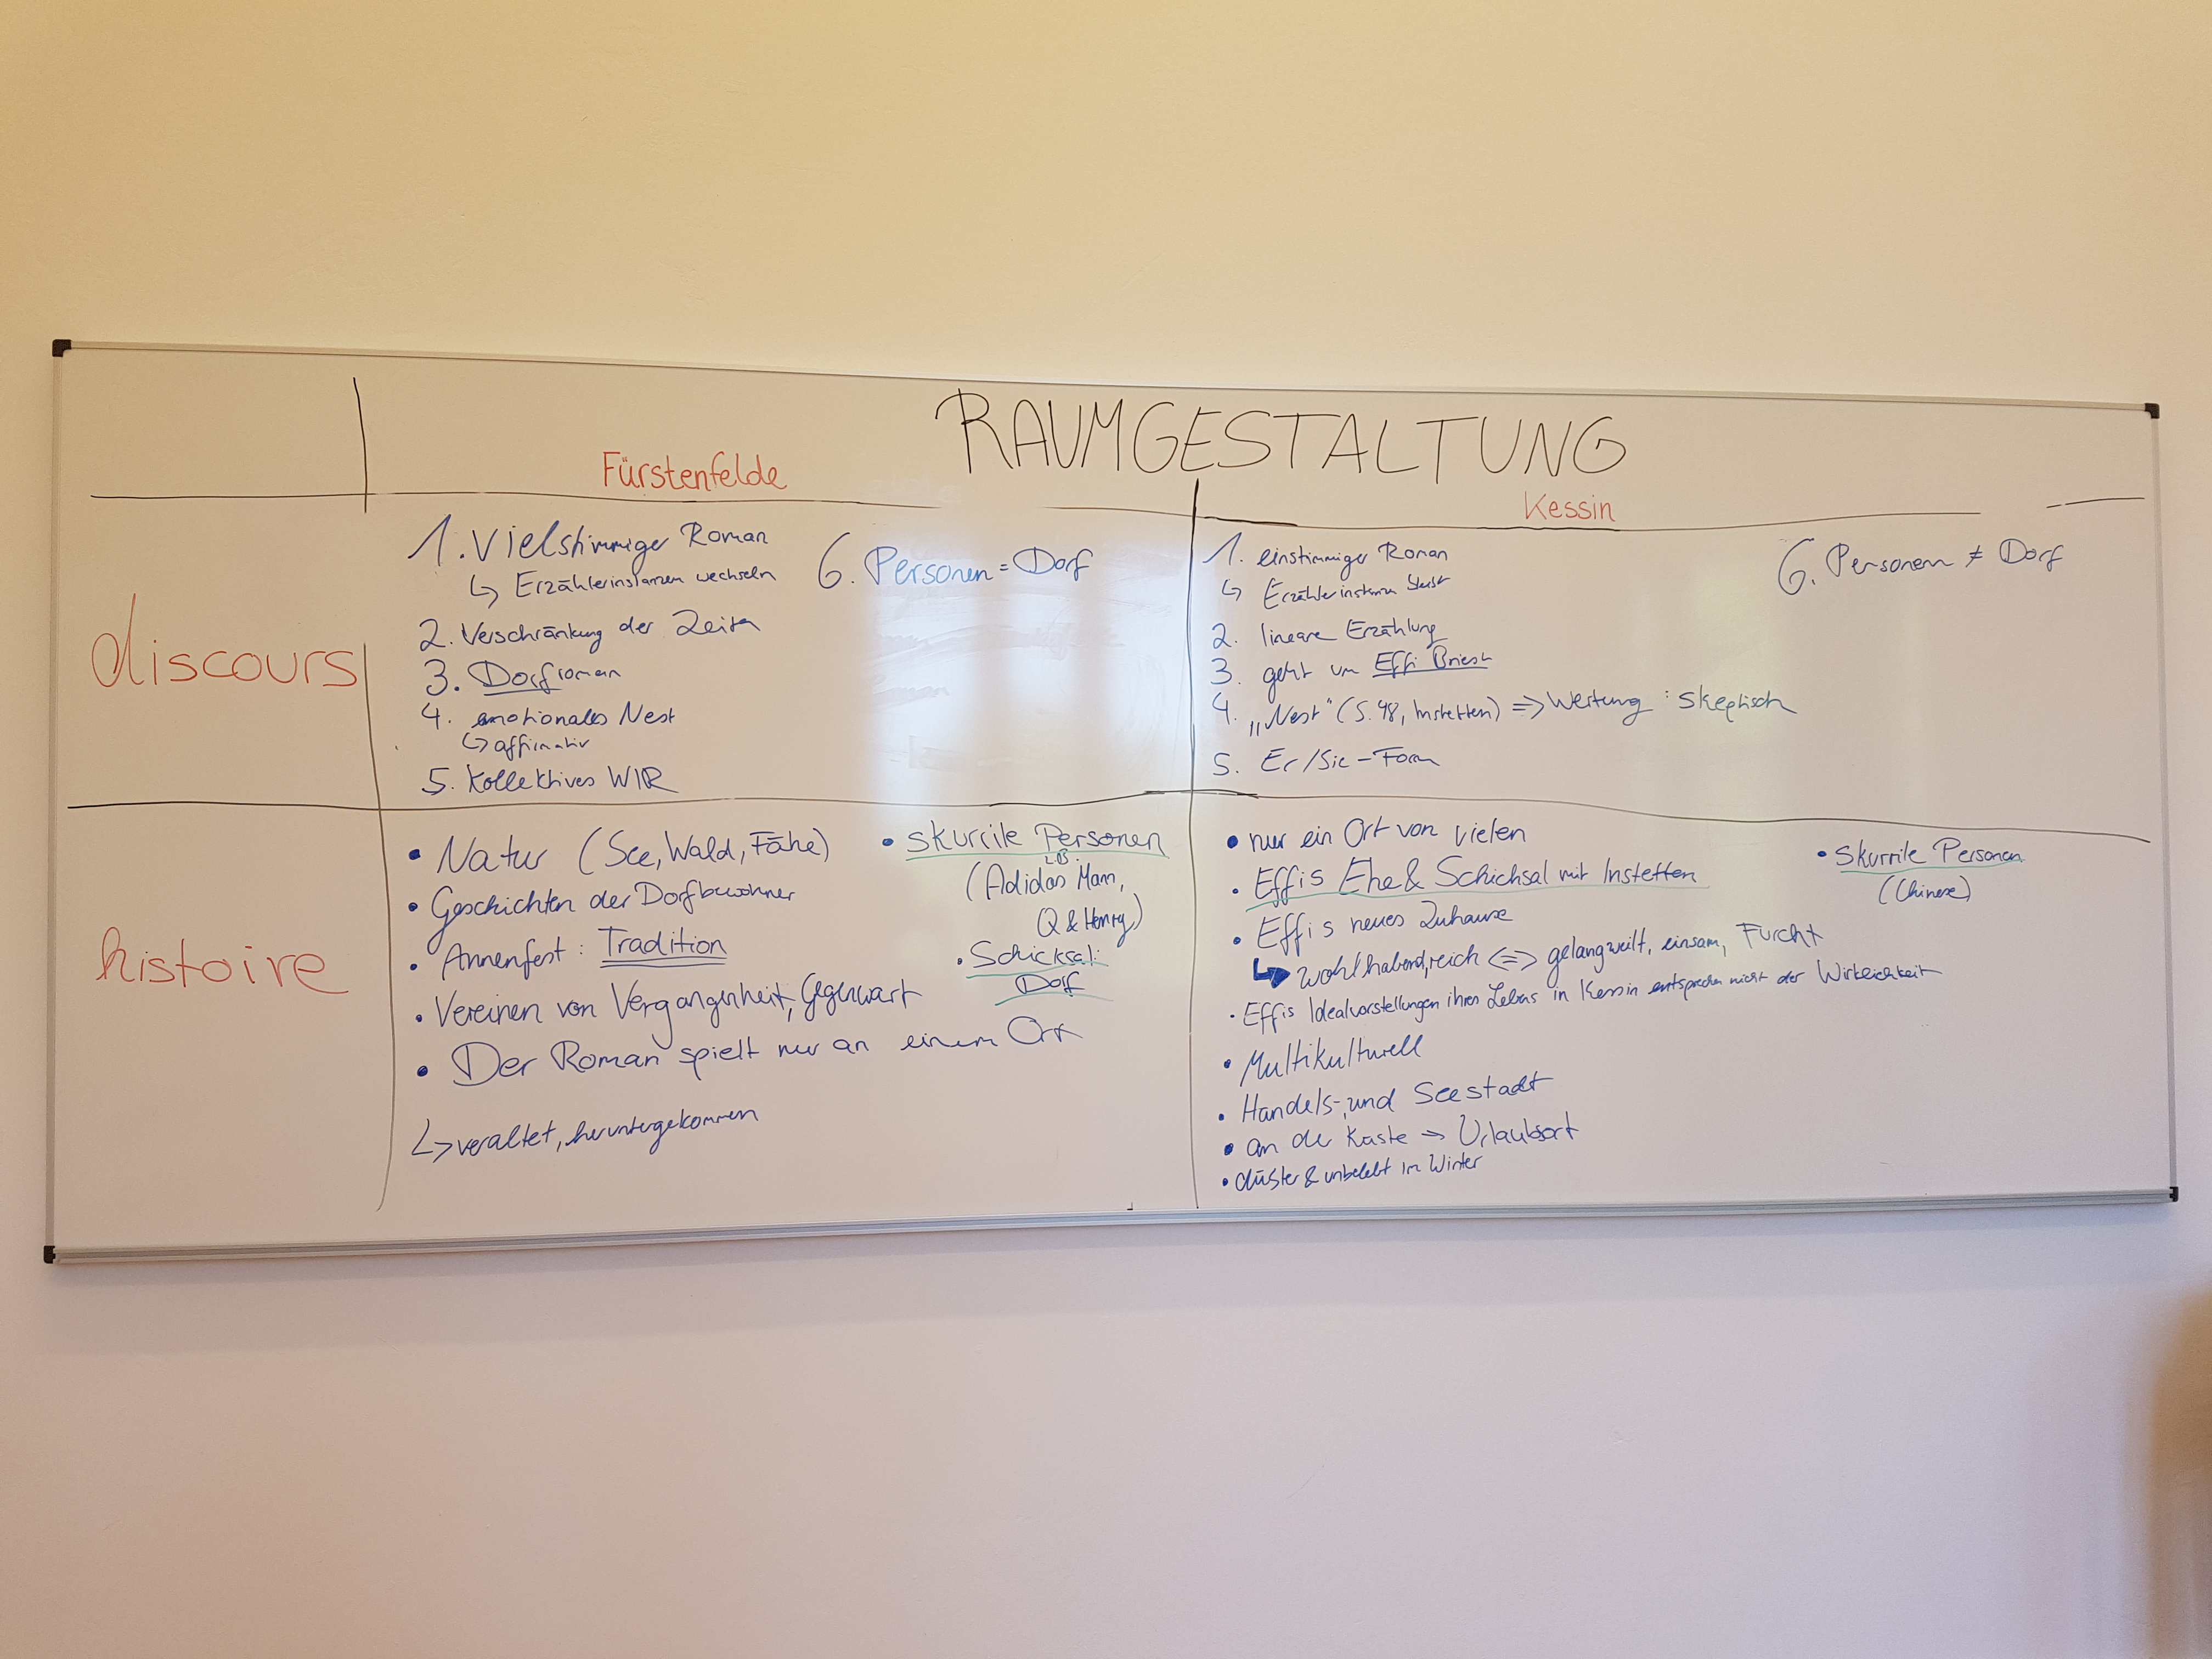 RAUMGESTALTUNG
Fürstenfelde
Kessin
discours
1. Vielstimmiger Roman
↳ Erzählerinstanzen wechseln
2. Verschränkung der Zeiten
3. Dorfroman
4. emotionales Nest
↳ affirmativ
5. Kollektives WIR
6. Personen = Dorf
1. einstimmiger Roman
↳ Erzählerinstanz
2. lineare Erzählung
3. geht um Effi Briest
4. „Nest" (S. 48, Instetten) => Wertung : skeptisch
5. Er/Sie-Form
6. Personen ≠ Dorf
histoire
• Natur (See, Wald, Fähe)
• Geschichten der Dorfbewohner
• Annenfest : Tradition
• Vereinen von Vergangenheit, Gegenwart
• Der Roman spielt nur an einem Ort
↳ veraltet, heruntergekommen
• skurrile Personen
z.B.
(Adidas Mann,
Q & Henry)
• Schicksal:
Dorf
• nur ein Ort von vielen
• Effis Ehe & Schicksal mit Instetten
• Effis neues Zuhause
↳ wohlhabend, reich <=> gelangweilt, einsam, Furcht
• Effis Idealvorstellungen ihres Lebens in Kessin entsprechen nicht der Wirklichkeit
• Multikulturell
• Handels- und Seestadt
• an der Küste → Urlaubsort
• düster & unbelebt im Winter
• Skurrile Personen
(Chinese)